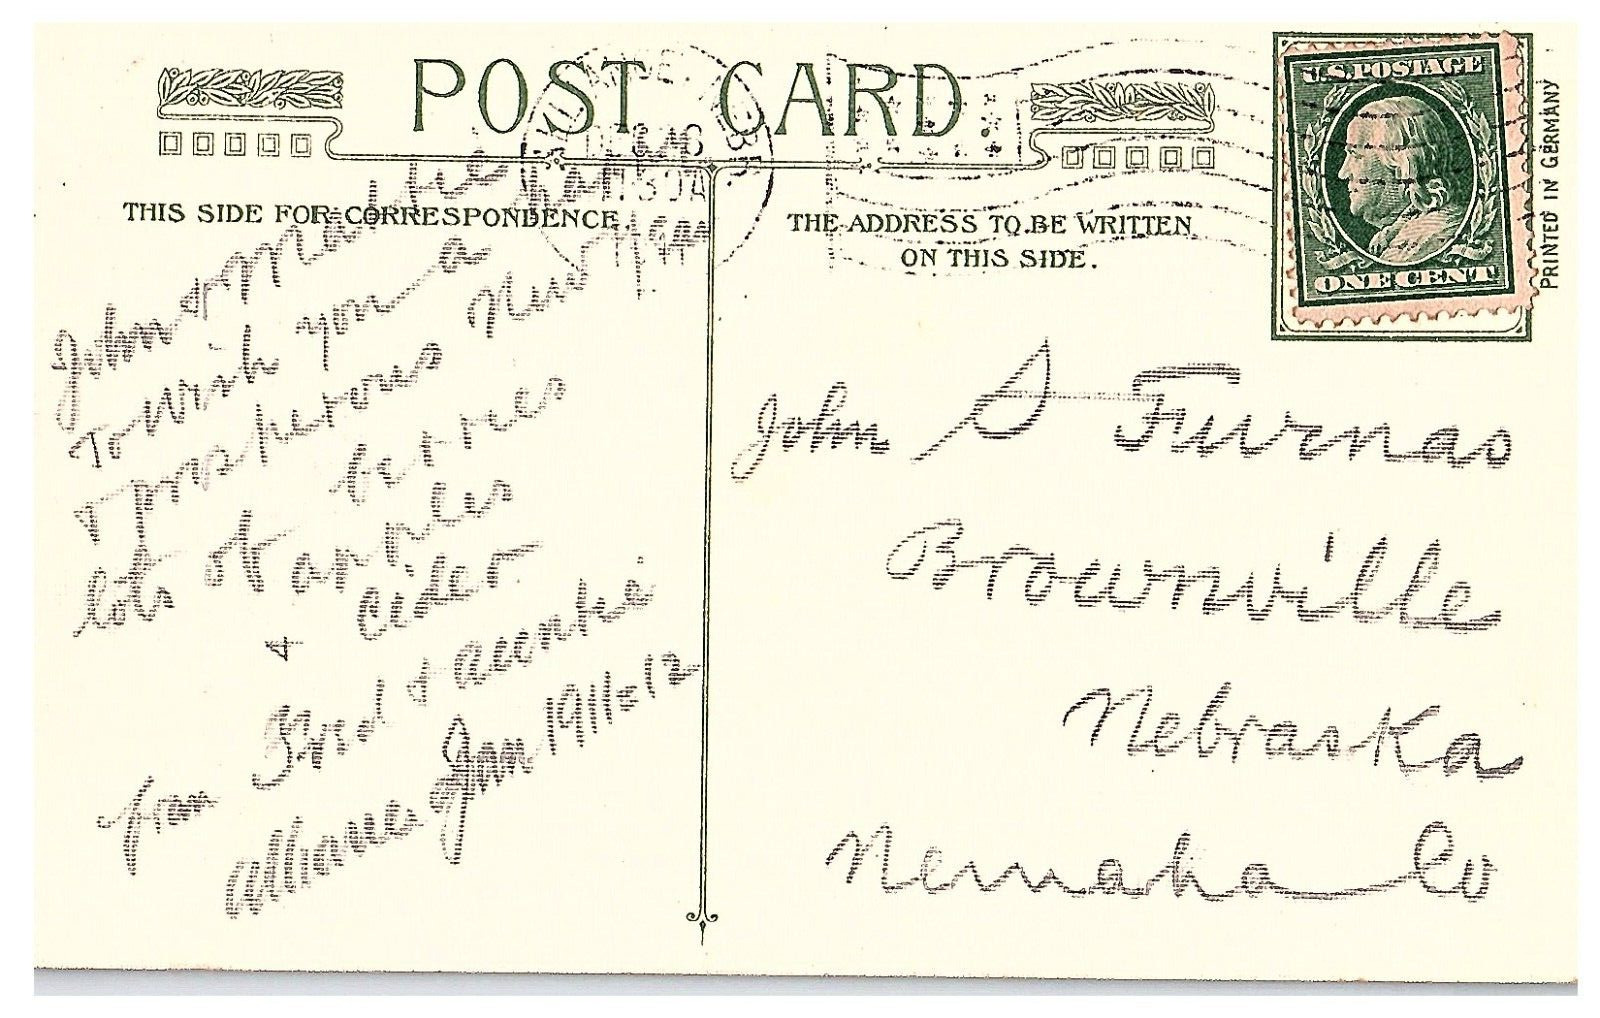 POST CARD
ALLIANCE, NEBR.
DEC
1130A
THIS SIDE FOR CORRESPONDENCE.
THE ADDRESS TO BE WRITTEN
ON THIS SIDE.
U.S. POSTAGE
ONE CENT
PRINTED IN GERMANY
John & Mattie
To wish you a
Prosperous New year
lots of
berries
apples
& cider
from Brad & auntie
Alliance Jan 1911 & 12
John S Furnas
Brownville
Nebraska
Nemaha Co